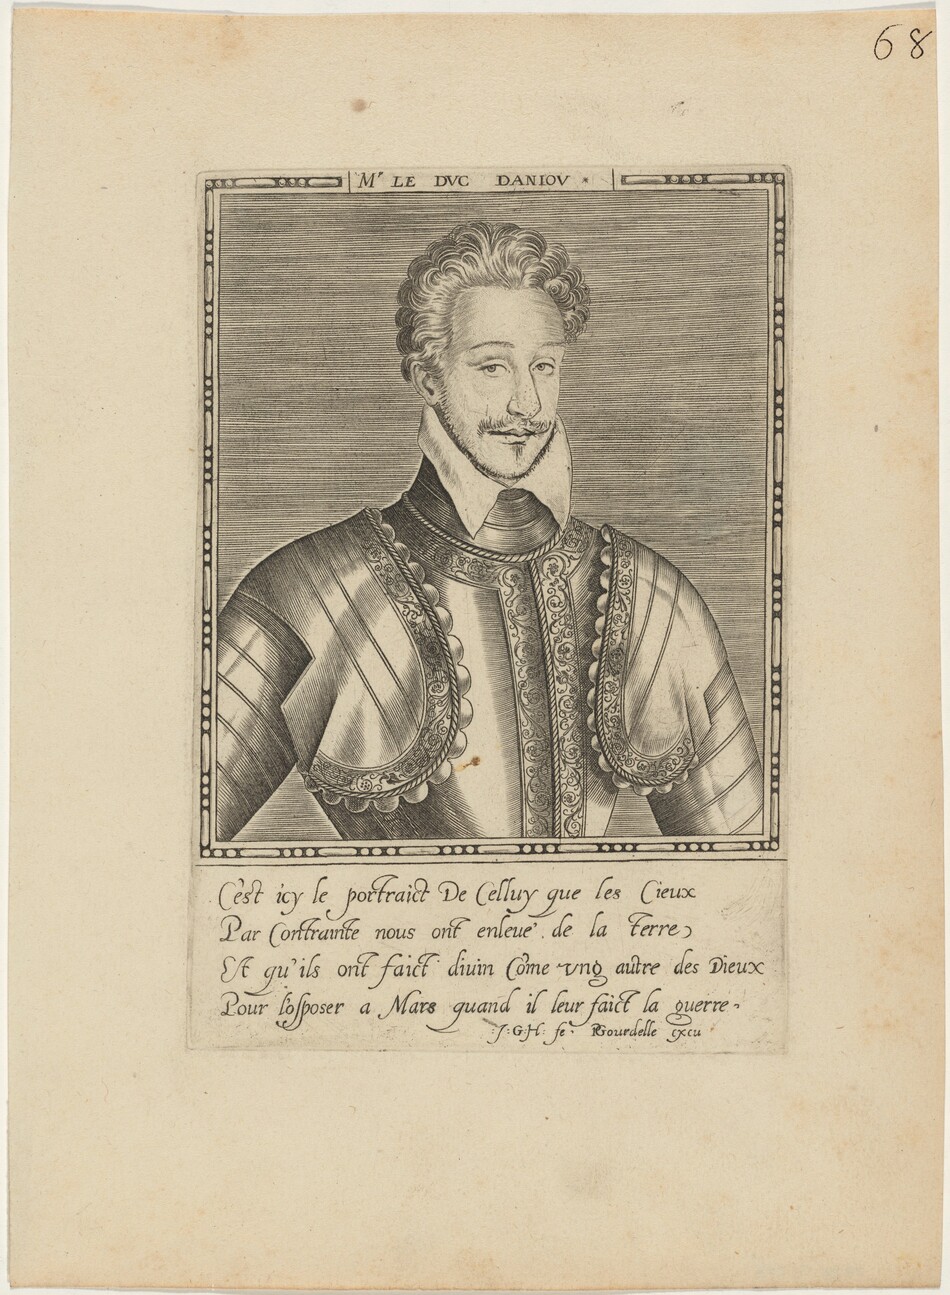 68
Mr LE DVC DANIOV
C'est icy le portraict De Celluy que les Cieux
Par Contrainte nous ont enleue' de la terre
Et qu'ils ont faict diuin Cõme vng autre des Dieux
Pour l'osposer a Mars quand il leur faict la guerre
:J:G:H: fe. PGourdelle excu